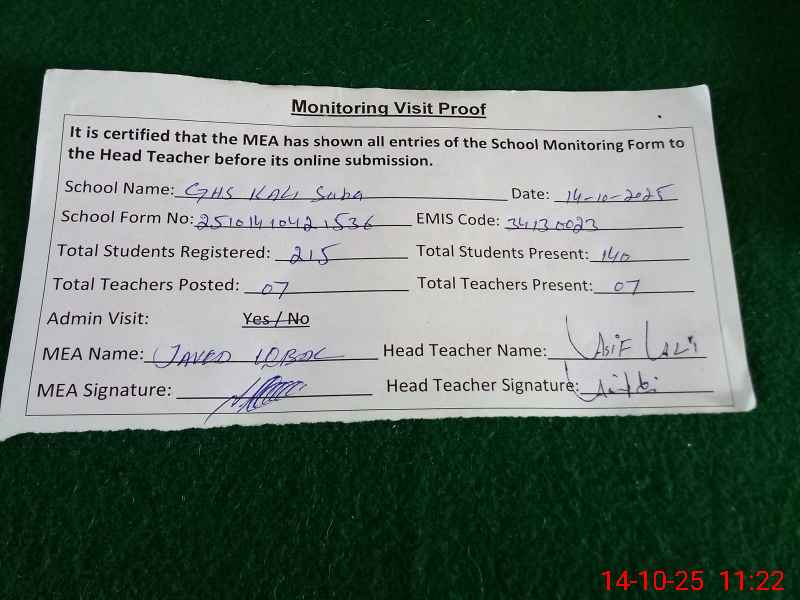 Monitoring Visit Proof
It is certified that the MEA has shown all entries of the School Monitoring Form to
the Head Teacher before its online submission.
School Name: GHS KALI Suba Date: 14-10-2025
School Form No: 2510141042 1536 EMIS Code: 34130023
Total Students Registered: 215 Total Students Present: 140
Total Teachers Posted: 07 Total Teachers Present: 07
Admin Visit: Yes / No
MEA Name: JAVED IQBAL Head Teacher Name: ASIF ALI
MEA Signature: Head Teacher Signature:
14-10-25 11:22